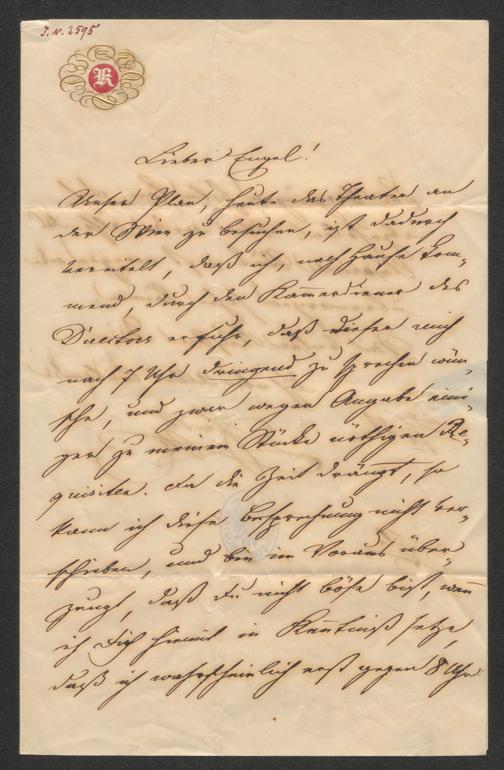 I. N. 2595
R
Lieber Engel!
Unser Plan, heute das Theater an
der Wien zu besuchen, ist dadurch
vereitelt, daß ich, nach Hause kom-
mend, durch den Kammerdiener des
Directors erfuhr, daß dieser mich
nach 7 Uhr dringend zu sprechen wün-
sche, und zwar wegen Angabe eini-
ger zu meinem Stücke nöthigen Re-
quisiten. Da die Zeit drängt, so
kann ich diese Besprechung nicht ver-
schieben, und bin im Voraus über-
zeugt, daß du nicht böse bist, wenn
ich Dich hiemit in Kenntniß setze,
daß ich wahrscheinlich erst gegen 8 Uhr